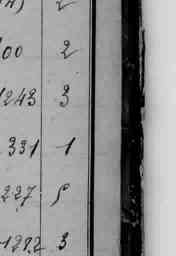 00 2
1243 3
331 1
227 5
1272 3